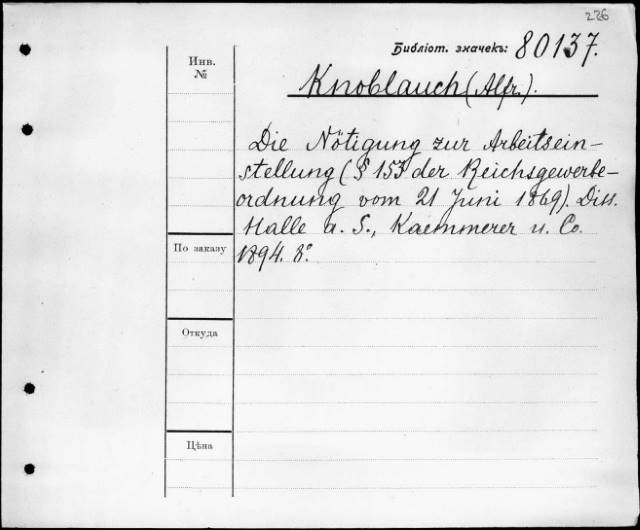 226
Библіот. значекъ: 80137.
Инв.
№
Knoblauch (Alfr.).
Die Nötigung zur Arbeitsein-
stellung (§ 153 der Reichsgewerbe-
ordnung vom 21 Juni 1869). Diss.
Halle a. S., Kaemmerer u. Co.
По заказу
1894. 8º
Откуда
Цѣна